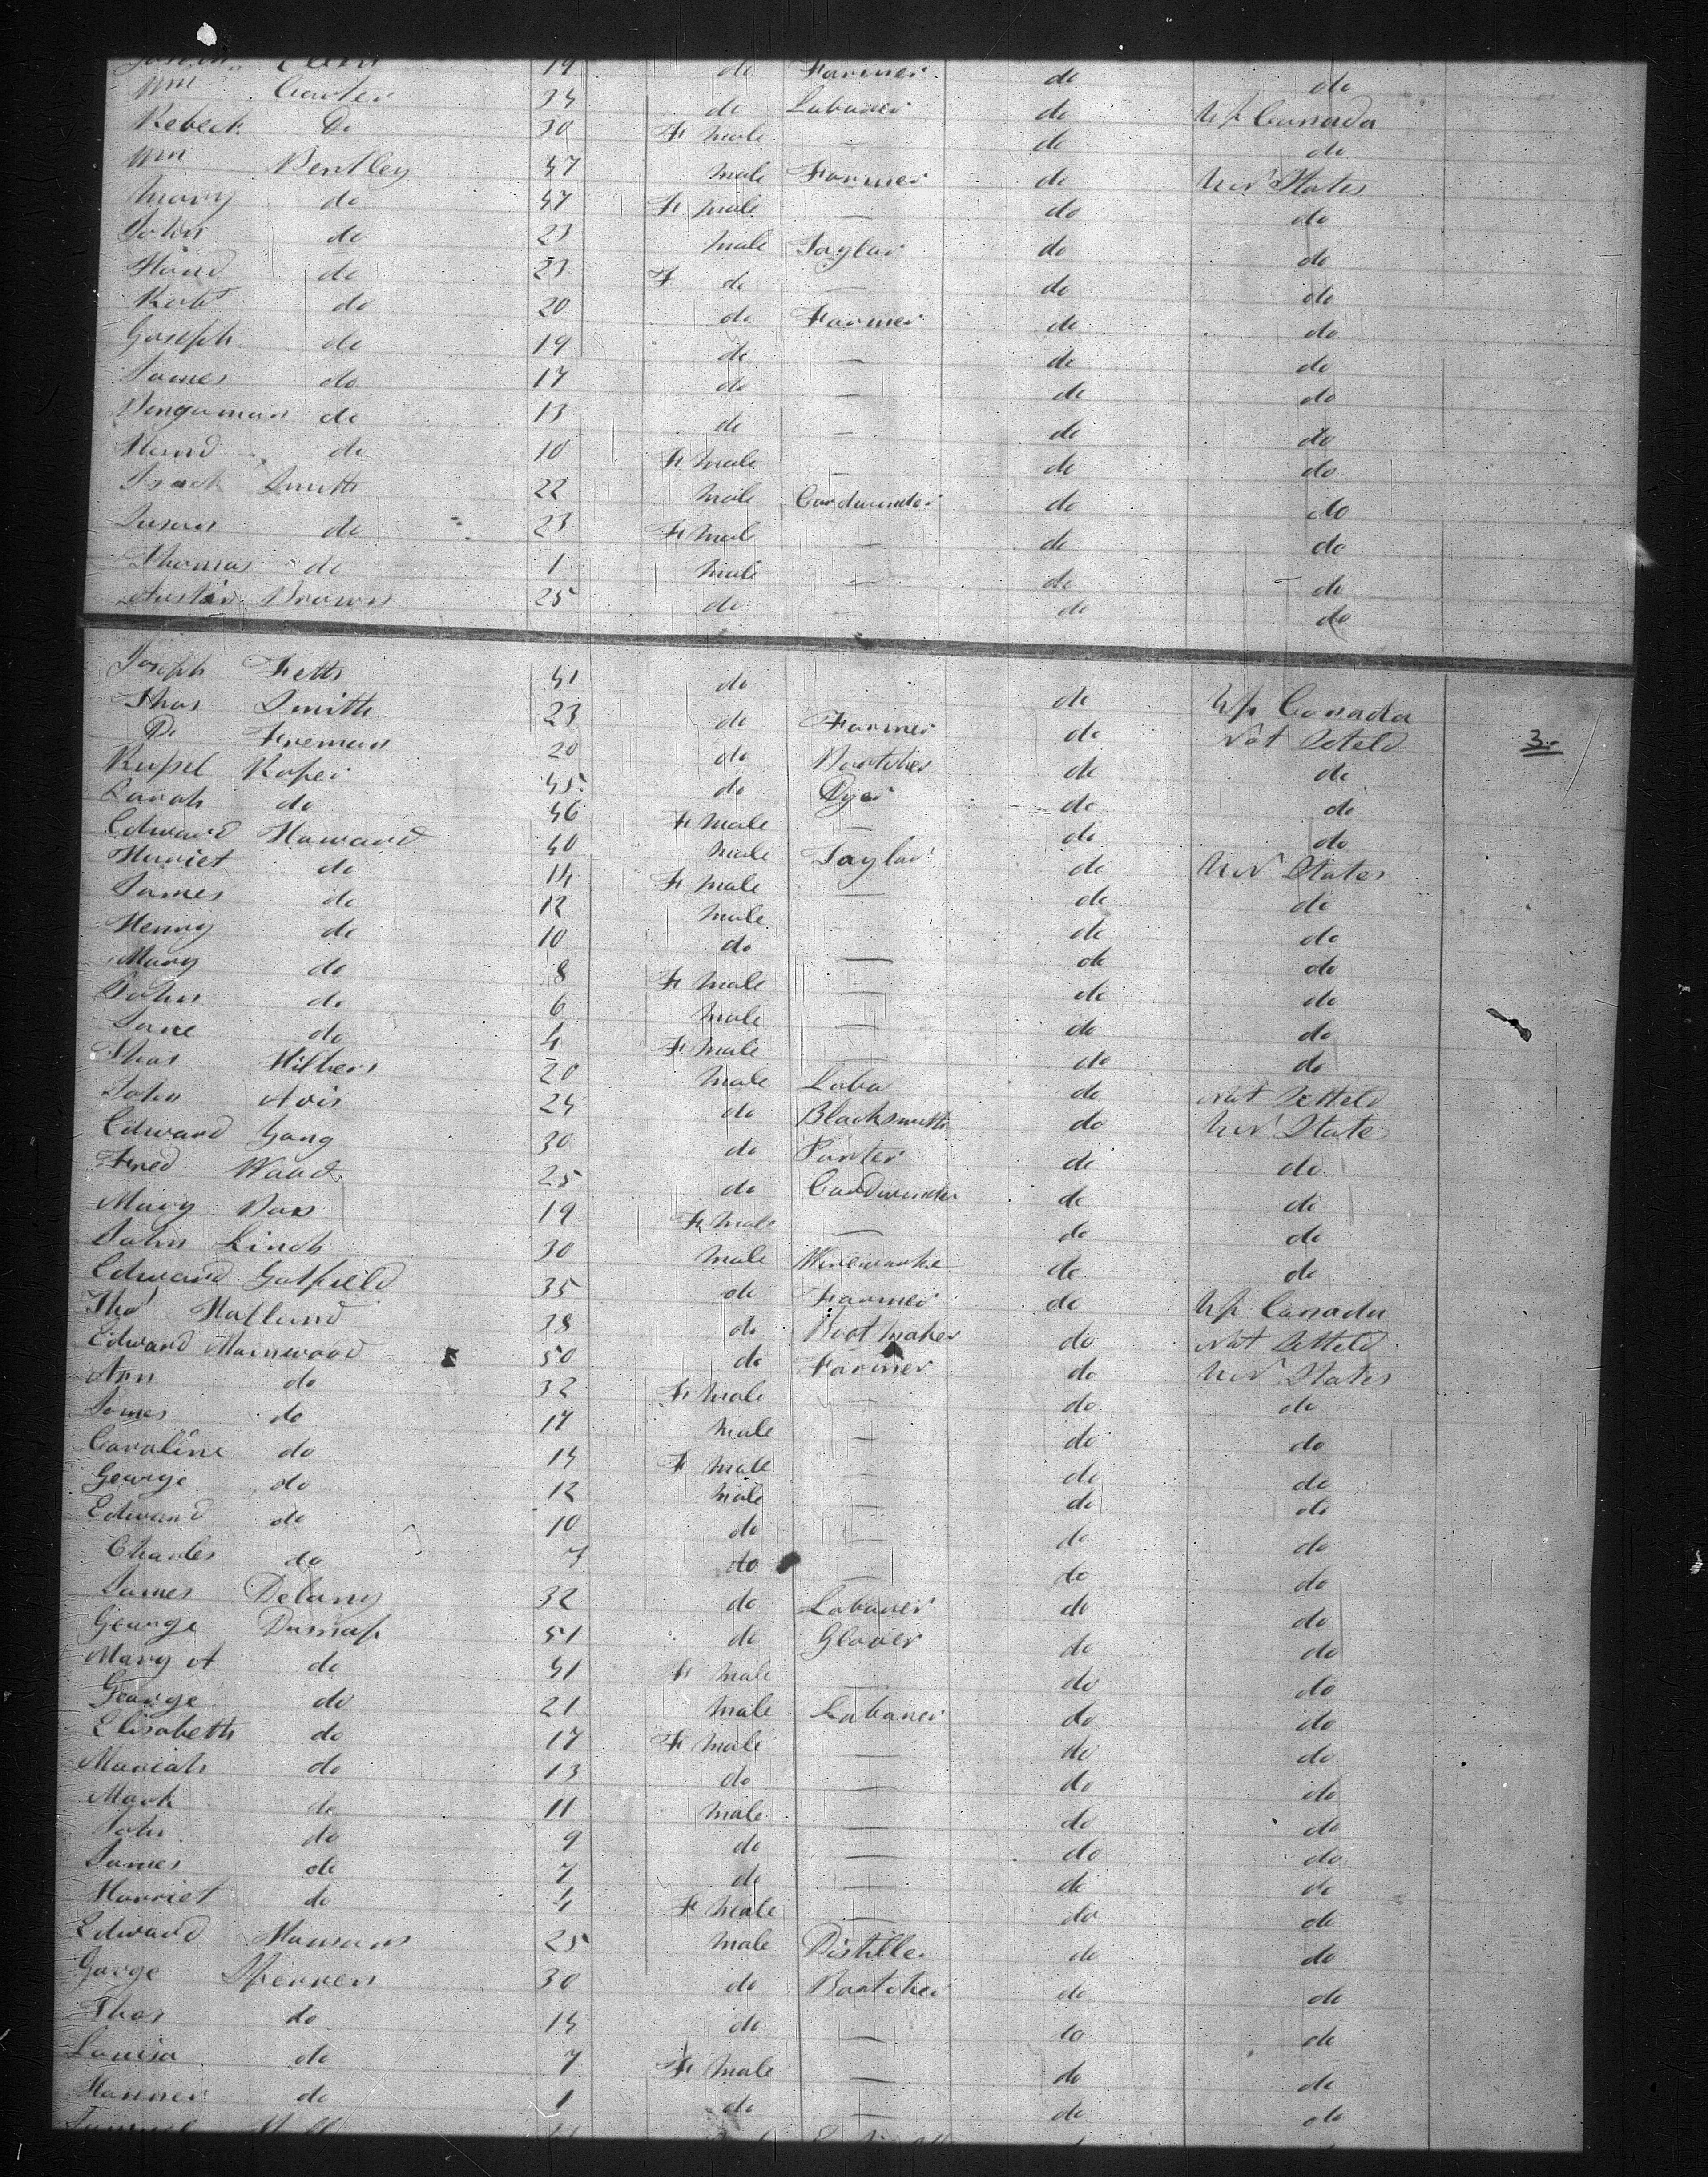 19 do Farmer do do
Wm Carter 34 do Labourer do Up Canada
Rebeck Do 30 F male — do do
Wm Bentley 47 male Farmer do Und States
Mary do 47 F male — do do
John do 23 male Taylor do do
do 23 F do — do do
Robt do 20 do Farmer do do
Joseph do 19 do — do do
James do 17 do — do do
Bengaman do 13 do — do do
do 10 F male — do do
Isack Smith 22 male Cordwinder do do
Susan do 23 F mal — do do
Thomas do 1 male — do do
Austin Brown 25 do — do do
Joseph Fetts 41 do do Up Canada
Thos Smith 23 do Farmer do Not Seteld 3
Do Freeman 20 do Bootcher do do
Roper 45 do Dyer do do
Sarah do 46 F male — do do
Edward Howard 40 male Taylor do Und States
Harriet do 14 F male — do do
James do 12 male do do
Henry do 10 do — do do
Mary do 8 F male — do do
John do 6 male — do do
Jane do 4 F male — do do
Thos Hilbers 20 male Labo do Not Setteld
John Avis 24 do Blacksmith do Und State
Edward Gang 30 do Porter do do
Fred Wood 25 do Cordwinder do do
Mary 19 F male — do do
John Linch 30 male Wireworke do do
Edward Gatfield 35 do Farmer do Up Canada
Thos Hafland 38 do Boot maker do Not Setteld
Edward Mainwood 50 do Farmer do Und States
Ann do 32 F male — do do
James do 17 male — do do
Caroline do 14 F male — do do
George do 12 male — do do
Edward do 10 do — do do
Charles do 7 do — do do
James Delany 32 do Labourer do do
George Dunnap 51 do Glover do do
Mary A do 41 F male — do do
George do 21 male Labourer do do
Elisabeth do 17 F male — do do
Mariah do 13 do — do do
Mark do 11 male — do do
John do 9 do — do do
James do 7 do — do do
Harriet do 4 F male — do do
Edward 25 male Distiller do do
Gorge Sperren 30 do Bootcher do do
Thos do 14 do — do do
Louisa do 7 F male — do do
Hanner do 1 do — do do